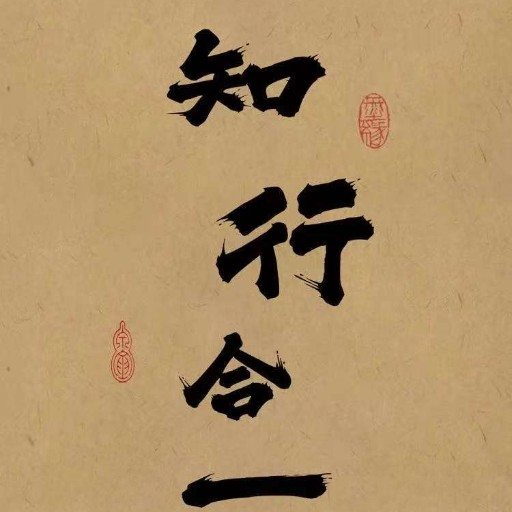 知
行
合
一